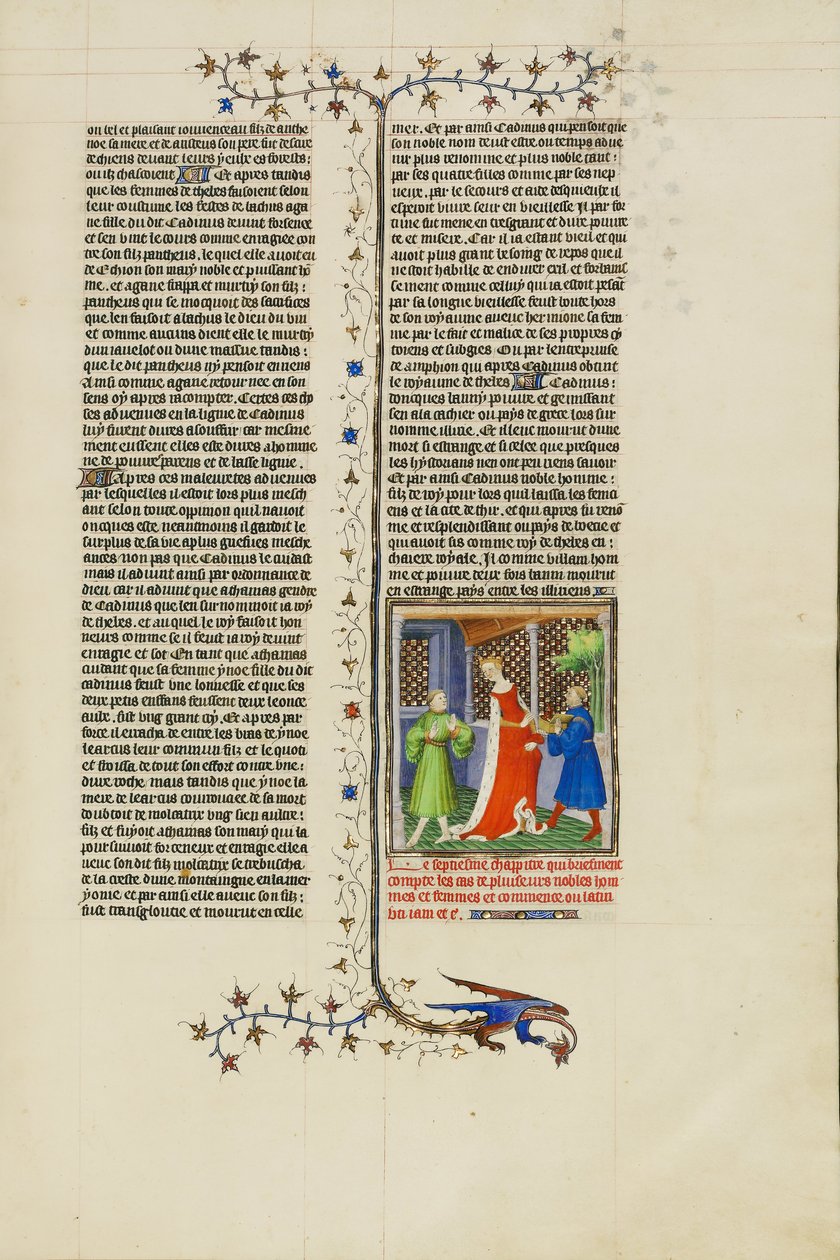 on bel et plaisant iouuenceau filz de anthe
noe sa mere et de austeus son pere fut desaire
de chiens deuant leurs yeulx es forestz:
ou ilz chassoient Et apres tandis
que les femmes de thebes faisoient selon
leur coustume les festes de bachus aga
ue fille du dit Cadinus deuint forsence
et sen vint le cours comme enragiee con
tre son filz pantheus, le quel elle auoit eu
de Echion son mary noble et puissant hō
me. et agaue frappa et murtry son filz:
pantheus qui se mocquoit des sacrifices
que len faisoit a bachus le dieu du vin
et comme aucuns dient elle le murtry
dun iauelot ou dune massue tandis:
que le dit pantheus ny pensoit en riens
Ainsi comme agaue retournee en son
sens oy apres racompter. Certes ces cho
ses aduenues en la ligne de Cadinus
luy furent dures a souffrir car mesme
ment eussent elles este dures a homme
ne de poures parens et de basse ligne.
Apres ces maleuretes aduenues
par lesquelles il estoit lors plus mesch
ant selon toute oppinion quil nauoit
oncques este neantmoins il gardoit le
surplus de sa vie a plus griefues mesche
ances non pas que Cadinus le cuidast
mais il aduint ainsi par ordonnance de
dieu car il aduint que athamas gendre
de Cadinus que len surnommoit ia roy
de thebes. et au quel le roy faisoit hon
neurs comme se il feust ia roy deuint
enragie et sot En tant que athamas
cuidant que sa femme ynoe fille du dit
cadinus feust vne lionnesse et que ses
deux petis enffans feussent deux leonce
aulx. fist vng grant cry. Et apres par
force il erracha de entre les bras de ynoe
learcus leur commun filz et le quoti
et froissa de tout son effort contre vne:
dure roche mais tandis que ynoe la
mere de learcus courroucee de sa mort
doubtoit de molcatrx vng sien aultre:
filz et fuyoit athamas son mary qui la
poursuiuoit forceneux et enragie elle a
ueuc son dit filz molcatrx se trebuscha
de la creste dune montaingne en la mer
yonie et par ainsi elle aueuc son filz:
fust transgloutie et mourut en celle
mer. Et par ainsi Cadinus qui pensoit que
son noble nom deust estre ou temps adue
nir plus renomme et plus noble tant:
par ses quatre filles comme par ses nep
ueux. par le secours et aide desquieulx il
esperoit viure seur en vieillesse Il par for
tune fut mene en tresgrant et dure poure
te et misere. Car il ia estant vieil et qui
auoit plus grant besoing de repos que il
ne estoit habille de endurer exil et forbanis
sement comme celluy qui ia estoit pesāt
par sa longue vieillesse feust boute hors
de son royaume aueuc hermione sa fem
me par le fait et malice de ses propres cy
toiens et subgies Ou par lentreprinse
de amphion qui apres Cadinus obtint
le royaume de thebes Cadinus:
doncques banny poure et gemissant
sen ala cachier ou pays de grece lors sur
nomme illirie. Et illeuc mourut dune
mort si estrange et si selee que presques
les hystorians nen ont peu riens sauoir
Et par ainsi Cadinus noble homme:
filz de roy pour lors quil laissa les fenici
ens et la cite de thir. et qui apres fu reno
me et resplendissant ou pays de boecie et
qui auoit sis comme roy de thebes en:
chaiere royale. Il comme villain hom
me et poure deux fois banni mourut
en estrange pays entre les illiriens
Le septiesme chappitre qui briefment
compte les cas de pluiseurs nobles hom
mes et femmes et commence ou latin